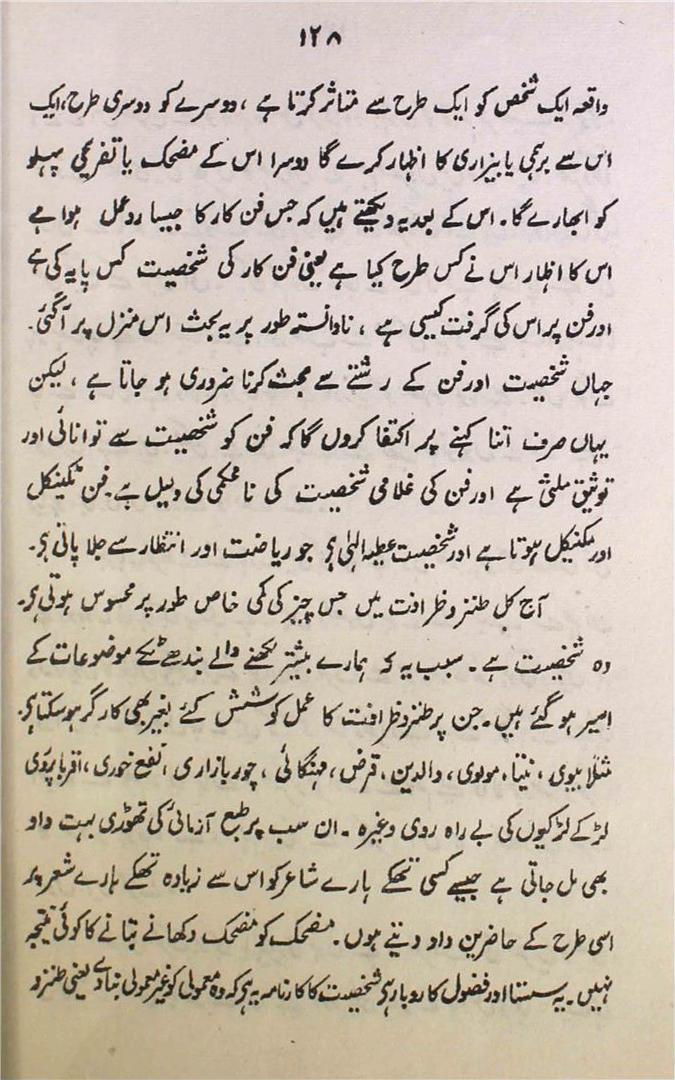 ۱۲۸
واقعہ ایک شخص کو ایک طرح سے متاثر کرتا ہے ، دوسرے کو دوسری طرح، ایک
اس سے برہمی یا بیزاری کا اظہار کرے گا دوسرا اس کے مضحک یا تفریحی پہلو
کو ابھارے گا۔ اس کے بعد یہ دیکھتے ہیں کہ جس فن کار کا جیسا ردعمل ہوا ہے
اس کا اظہار اس نے کس طرح کیا ہے یعنی فن کار کی شخصیت کس پایہ کی ہے
اور فن پر اس کی گرفت کیسی ہے ، نادانستہ طور پر یہ بحث اس منزل پر آگئی۔
جہاں شخصیت اور فن کے رشتے سے بحث کرنا ضروری ہو جاتا ہے ، لیکن
یہاں صرف اتنا کہنے پر اکتفا کروں گا کہ فن کو شخصیت سے توانائی اور
توثیق ملتی ہے اور فن کی غلامی شخصیت کی نامحکمی کی دلیل ہے۔ فن ٹکینکل
اور مکنیکل ہوتا ہے اور شخصیت عطیہ الہٰی ہے جو ریاضت اور انتظار سے جلا پاتی ہے۔
آج کل طنز و ظرافت میں جس چیز کی کمی خاص طور پر محسوس ہوتی ہے۔
وہ شخصیت ہے۔ سبب یہ کہ ہمارے بیشتر لکھنے والے بندھے ٹکے موضوعات کے
اسیر ہو گئے ہیں۔ جن پر طنز و ظرافت کا عمل کوشش کئے بغیر بھی کارگر ہو سکتا ہے۔
مثلاً بیوی ، نیتا، مولوی، والدین، قرض، مہنگائی ، چور بازاری ، نفع خوری، اقربا پروری
لڑکے لڑکیوں کی بے راہ روی وغیرہ ۔ ان سب پر طبع آزمائی کی تھوڑی بہت داد
بھی مل جاتی ہے جیسے کسی تھکے ہارے شاعر کو اس سے زیادہ تھکے ہارے شعر پر
اسی طرح کے حاضرین داد دیتے ہوں۔ مضحک کو مضحک دکھانے بتانے کا کوئی نتیجہ
نہیں۔ یہ سستا اور فضول کاروبار ہے شخصیت کا کارنامہ یہ ہے کہ وہ معمولی کو غیر معمولی بنا دے یعنی طنز و